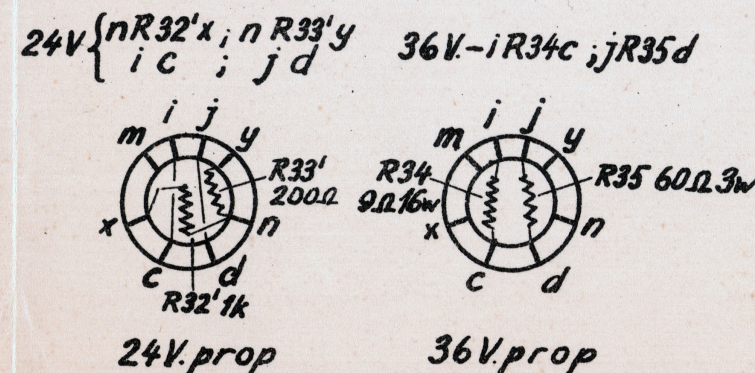 24V { nR32'x ; nR33'y
i c ; j d
36V.-iR34c ; jR35d
m i j y
R33'
200Ω
x n
c d
R32' 1k
24V.prop
m i j y
R34
9Ω16w
R35 60Ω 3w
x n
c d
36V.prop